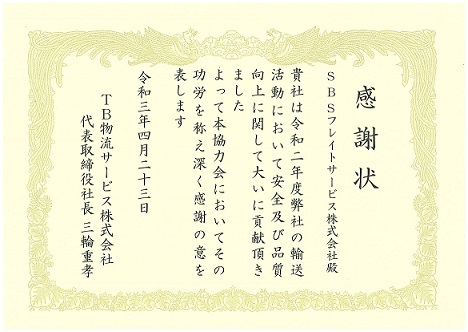 感謝状
SBSフレイトサービス株式会社殿
貴社は令和二年度弊社の輸送
活動において安全及び品質
向上に関して大いに貢献頂き
ました
よって本協力会においてその
功労を称え深く感謝の意を
表します
令和三年四月二十三日
TB物流サービス株式会社
代表取締役社長 三輪重孝